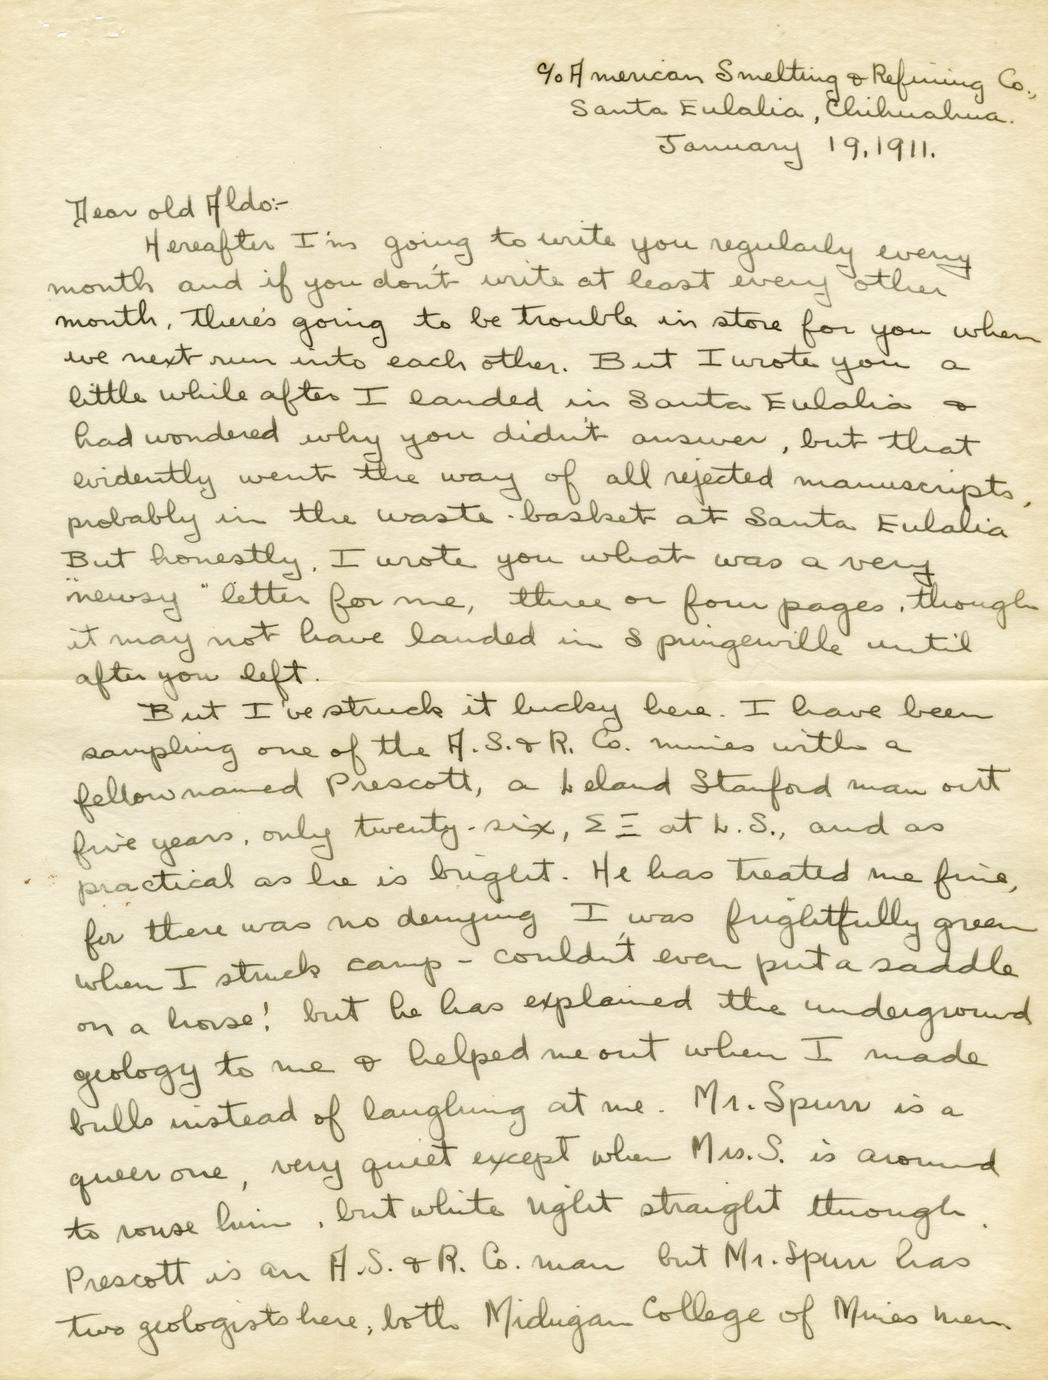 c/o American Smelting & Refining Co.,
Santa Eulalia, Chihuahua.
January 19, 1911.
Dear old Aldo:-
Hereafter I'm going to write you regularly every
month and if you don't write at least every other
month, there's going to be trouble in store for you when
we next run into each other. But I wrote you a
little while after I landed in Santa Eulalia &
had wondered why you didn't answer, but that
evidently went the way of all rejected manuscripts,
probably in the waste-basket at Santa Eulalia
But honestly, I wrote you what was a very
"newsy" letter for me, three or four pages, though
it may not have landed in Springerville until
after you left.
But I've struck it lucky here. I have been
sampling one of the A.S.&R. Co. mines with a
fellow named Prescott, a Leland Stanford man out
five years, only twenty-six, Σ Ξ at L.S., and as
practical as he is bright. He has treated me fine,
for there was no denying I was frightfully green
when I struck camp - couldn't even put a saddle
on a horse! but he has explained the underground
geology to me & helped me out when I made
bulls instead of laughing at me. Mr. Spurr is a
queer one, very quiet except when Mrs. S. is around
to rouse him, but white right straight through.
Prescott is an A.S. & R. Co. man but Mr. Spurr has
two geologists here, both Michigan College of Mines men